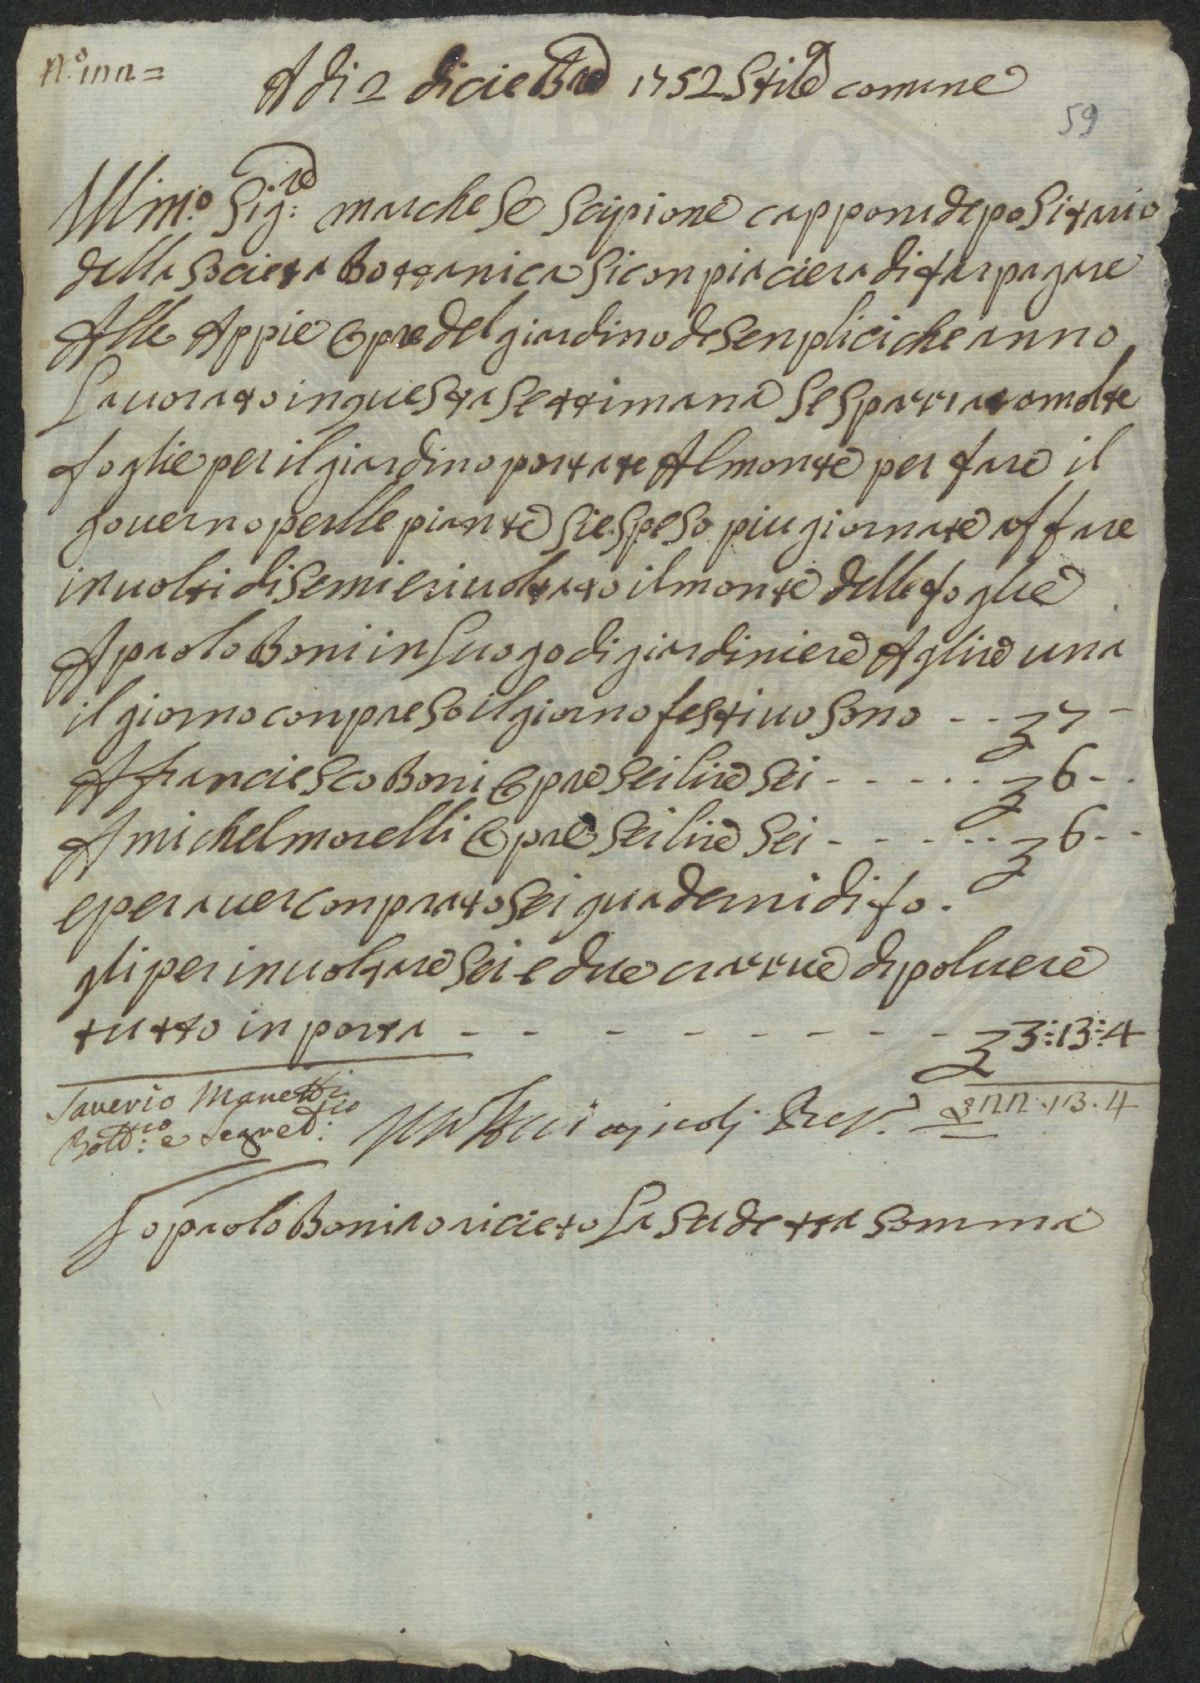 N.º 122=
A di 2 dicieBre 1752 Stile comune
59
Ill.mo Sig:re marchese Scipione capponi depositario
della Societa Bottanica Si conpiaciera di far pagare
Alle Appie Opre del giardino de Senplici che anno
Lauorato in questa Settimana Se Sparraro molte
foglie per il giardino portate Al monte per fare il
gouerno perlle piante Sie Speso piu giornate affare
inuolti di Semi e riuoltato il monte delle foglie
A paolo Boni in Luogo di giardiniere A glire una
il giorno conpreso il giorno festiuo Sono - - 7 -
A franciesco Boni Opre Sei lire Sei - - - - - 6 - -
A michel morelli Opre Sei lire Sei - - - - - 6 - -
e per auer conprato Sei quaderni di fo-
gli per inuoltare Sei e due crarrue di poluere
tutto inporta - - - - - - - - - 3:13:4
Saverio Manetti
Bott:co e Segret:rio
22.13.4
Io paolo Boni o riceuto La Sudetta Somma